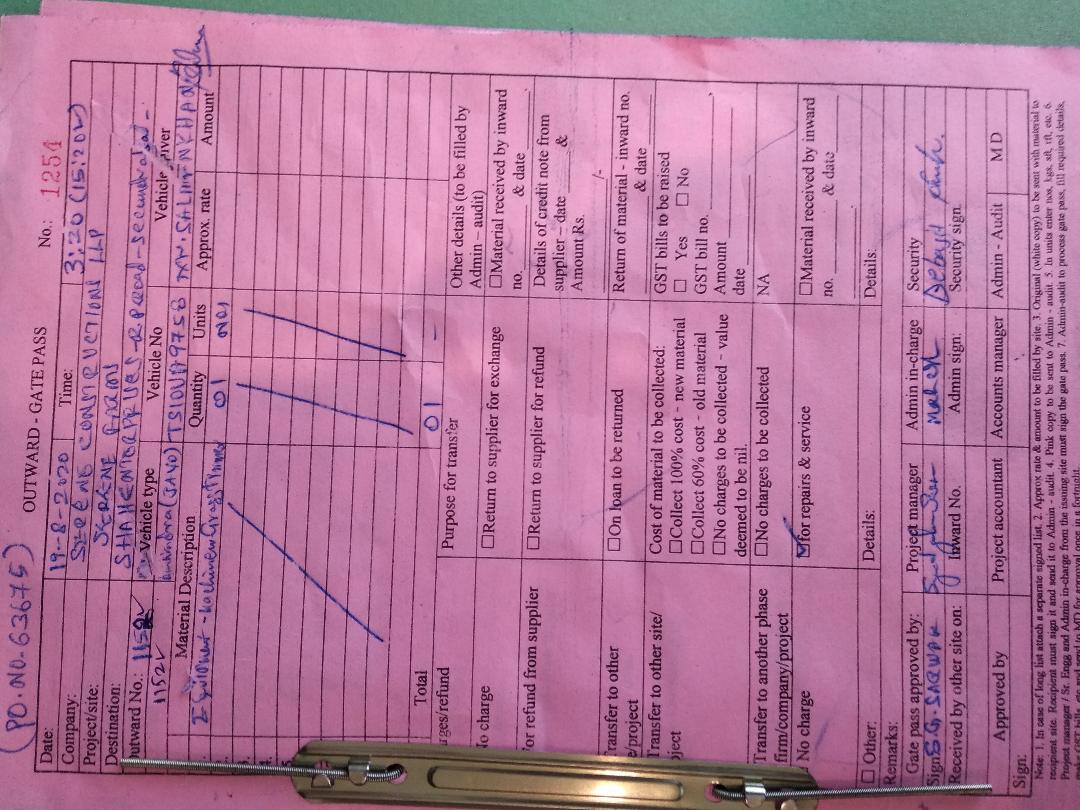 (PO.NO.63675)
OUTWARD - GATE PASS
No.: 1254
Date: 19-8-2020 Time: 3:20 (15:20
Company: SERENE CONSTRUCTIONS LLP
Project/site: SERENE FARMS
Destination: SHAH ENTERPRISES - R P Road - Secunderabad -
Outward No.: 1152 Vehicle type Vehicle No Vehicle Driver
1152 TS10UA9758 MR. SALIM KHAN
Material Description Quantity Units Approx. rate Amount
Equipment - Machine 01 No1
Total 01 -
Purpose for transfer Other details (to be filled by
Admin – audit)
No charge □Return to supplier for exchange □Material received by inward
no. & date
For refund from supplier □Return to supplier for refund Details of credit note from
supplier – date &
Amount Rs. /-
Transfer to other □On loan to be returned Return of material - inward no.
& date
Transfer to other site/ Cost of material to be collected: GST bills to be raised
□Collect 100% cost - new material □ Yes □ No
□Collect 60% cost - old material GST bill no.
□No charges to be collected - value Amount
deemed to be nil. date
Transfer to another phase □No charges to be collected NA
firm/company/project
No charge for repairs & service □Material received by inward
no. & date
□ Other: Details: Details:
Remarks:
Gate pass approved by: Project manager Admin in-charge Security
Sign: S.G. SARWAR Mahesh
Received by other site on: Inward No. Admin sign: Security sign.
Approved by Project accountant Accounts manager Admin - Audit M D
Sign:
Note: 1. In case of long list attach a separate signed list. 2. Approx rate & amount to be filled by site. 3. Original (white copy) to be sent with material to
recipient site. Recipient must sign it and send it to Admin - audit. 4. Pink copy to be sent to Admin - audit 5. In units enter nos, kgs, sft, rft, etc. 6.
Project manager / Sr. Engg and Admin in-charge from the issuing site must sign the gate pass. 7. Admin-audit to process gate pass, fill required details,